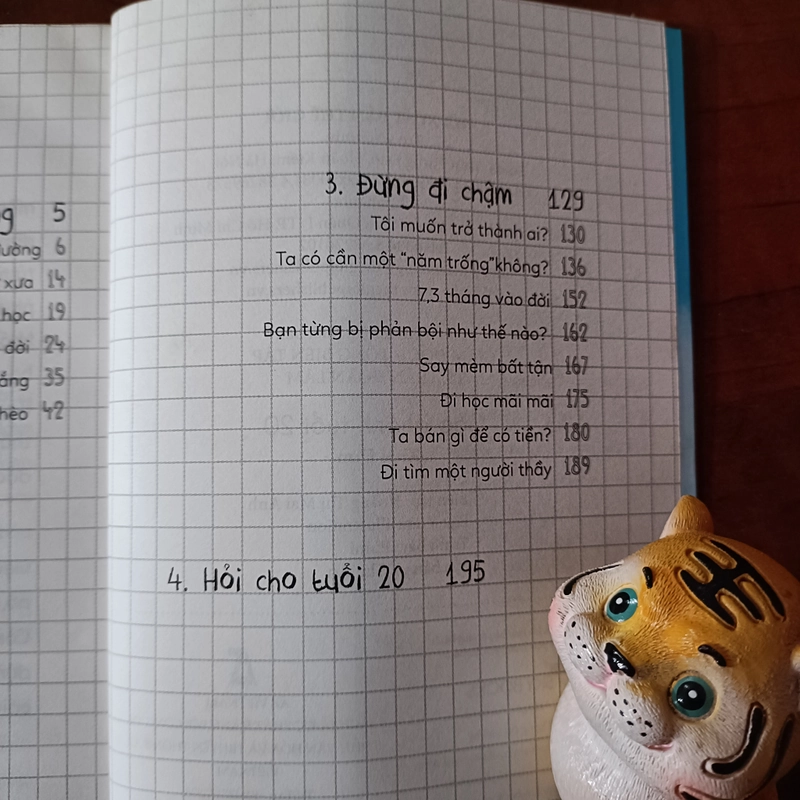 5
6
xưa 14
học 19
đời 24
35
42
3. Đừng đi chậm 129
Tôi muốn trở thành ai? 130
Ta có cần một "năm trống"không? 136
7,3 tháng vào đời 152
Bạn từng bị phản bội như thế nào? 162
Say mèm bất tận 167
Đi học mãi mãi 175
Ta bán gì để có tiền? 180
Đi tìm một người thầy 189
4. Hỏi cho tuổi 20 195